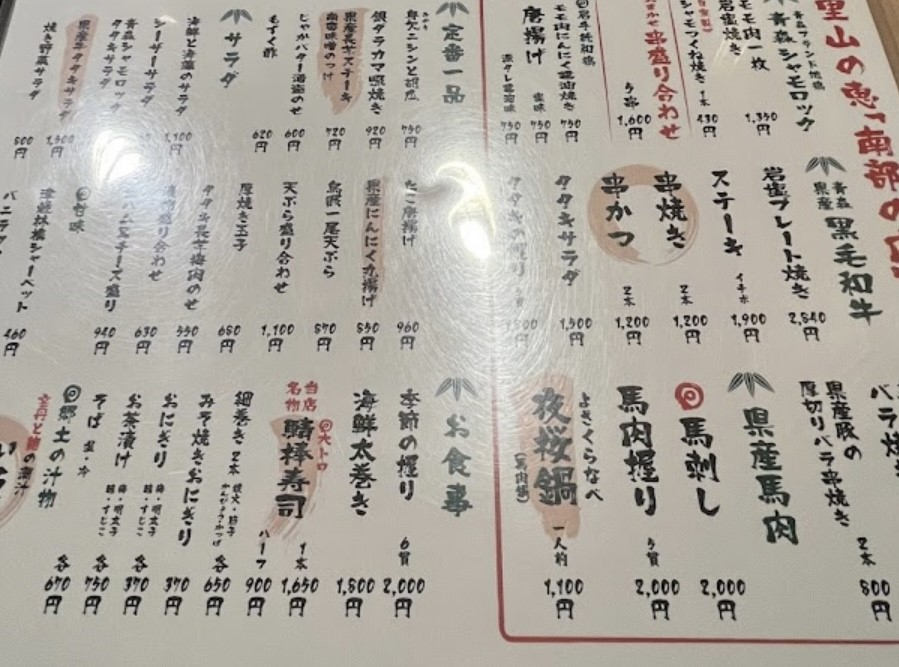 里山の恵
南部の
青森シャモロック
モモ肉一枚
岩塩焼き
1,350円
シャモつくね焼き 1本
430円
串盛り合わせ
5串
1,600円
モモ肉にんにく醤油焼き
750円
唐揚げ
塩味
750円
源タレ醤油味
750円
青森県産
黒毛和牛
岩塩プレート焼き
2,840円
ステーキ
イチボ
1,900円
串焼き
2本
1,200円
串かつ
2本
1,200円
タタキサラダ
1,500円
バラ焼
県産豚の
厚切りバラ串焼き
2本
800円
県産馬肉
馬刺し
2,000円
馬肉握り
5貫
2,000円
よざくらなべ
夜桜鍋
(馬肉鍋)
一人前
1,100円
定番一品
身欠ニシンと胡瓜
750円
銀ダラカマ照焼き
920円
県産長芋ステーキ
南蛮味噌のっけ
720円
じゃがバター海苔のせ
600円
もずく酢
620円
サラダ
海鮮と海藻のサラダ
1,100円
シーザーサラダ
青森シャモロック
タタキサラダ
県産牛タタキサラダ
1,500円
焼き野菜サラダ
800円
たこ唐揚げ
960円
県産にんにく丸揚げ
850円
鳥賊一尾天ぷら
870円
天ぷら盛り合わせ
1,100円
厚焼き玉子
680円
タタキ長芋梅肉のせ
550円
盛り合わせ
630円
チーズ盛り
940円
甘味
津軽林檎シャーベット
460円
バニラ
お食事
季節の握り
6貫
2,000円
海鮮太巻き
1,800円
当店名物
大トロ
鯖棒寿司
1本
1,650円
ハーフ
900円
細巻き 2本
各
650円
みそ焼きおにぎり
370円
おにぎり
梅・明太子
鮭・すじこ
各
370円
お茶漬け
梅・明太子
鮭・すじこ
各
750円
そば 温・冷
各
670円
郷土の汁物